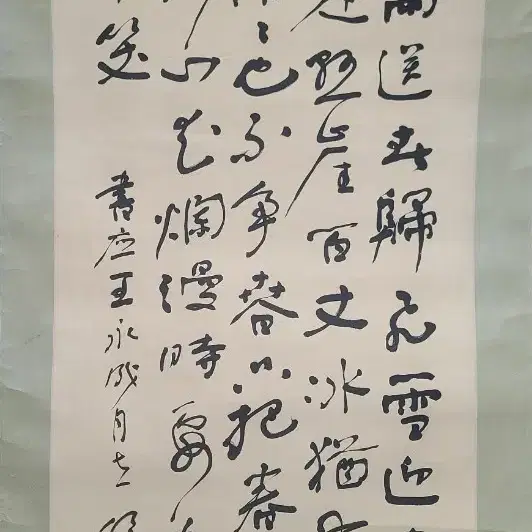 雨送春歸飛雪迎
是懸崖百丈冰猶
也不争春只把春
山花爛漫時她
笑
書应王永成